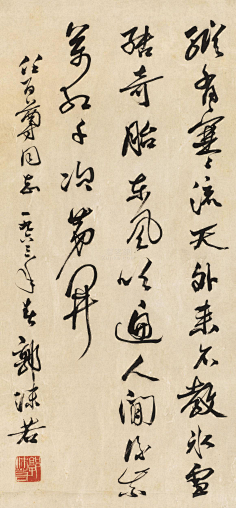 縱有寒流天外來不教冰雪
結奇胎東風吹遍人間後紫
萬紅千次第開
任百尊同志 一九六三年春 郭沫若